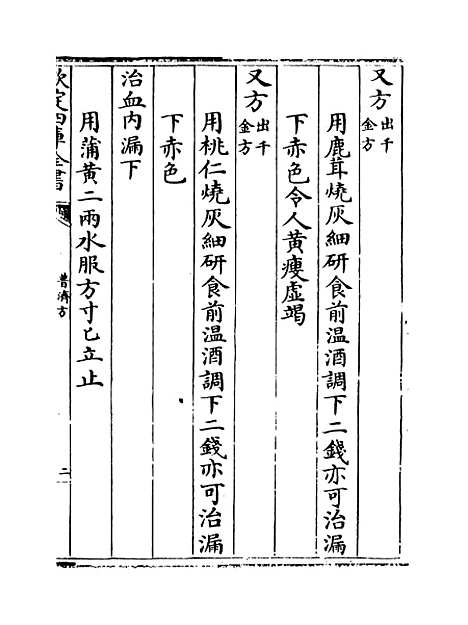 又方出千金方
用鹿茸燒灰細研食前温酒調下二錢亦可治漏
下赤色令人黄瘦虚竭
又方出千金方
用桃仁燒灰細研食前温酒調下二錢亦可治漏
下赤色
治血内漏下
用蒲黄二兩水服方寸匕立止
欽定四庫全書
普濟方
二